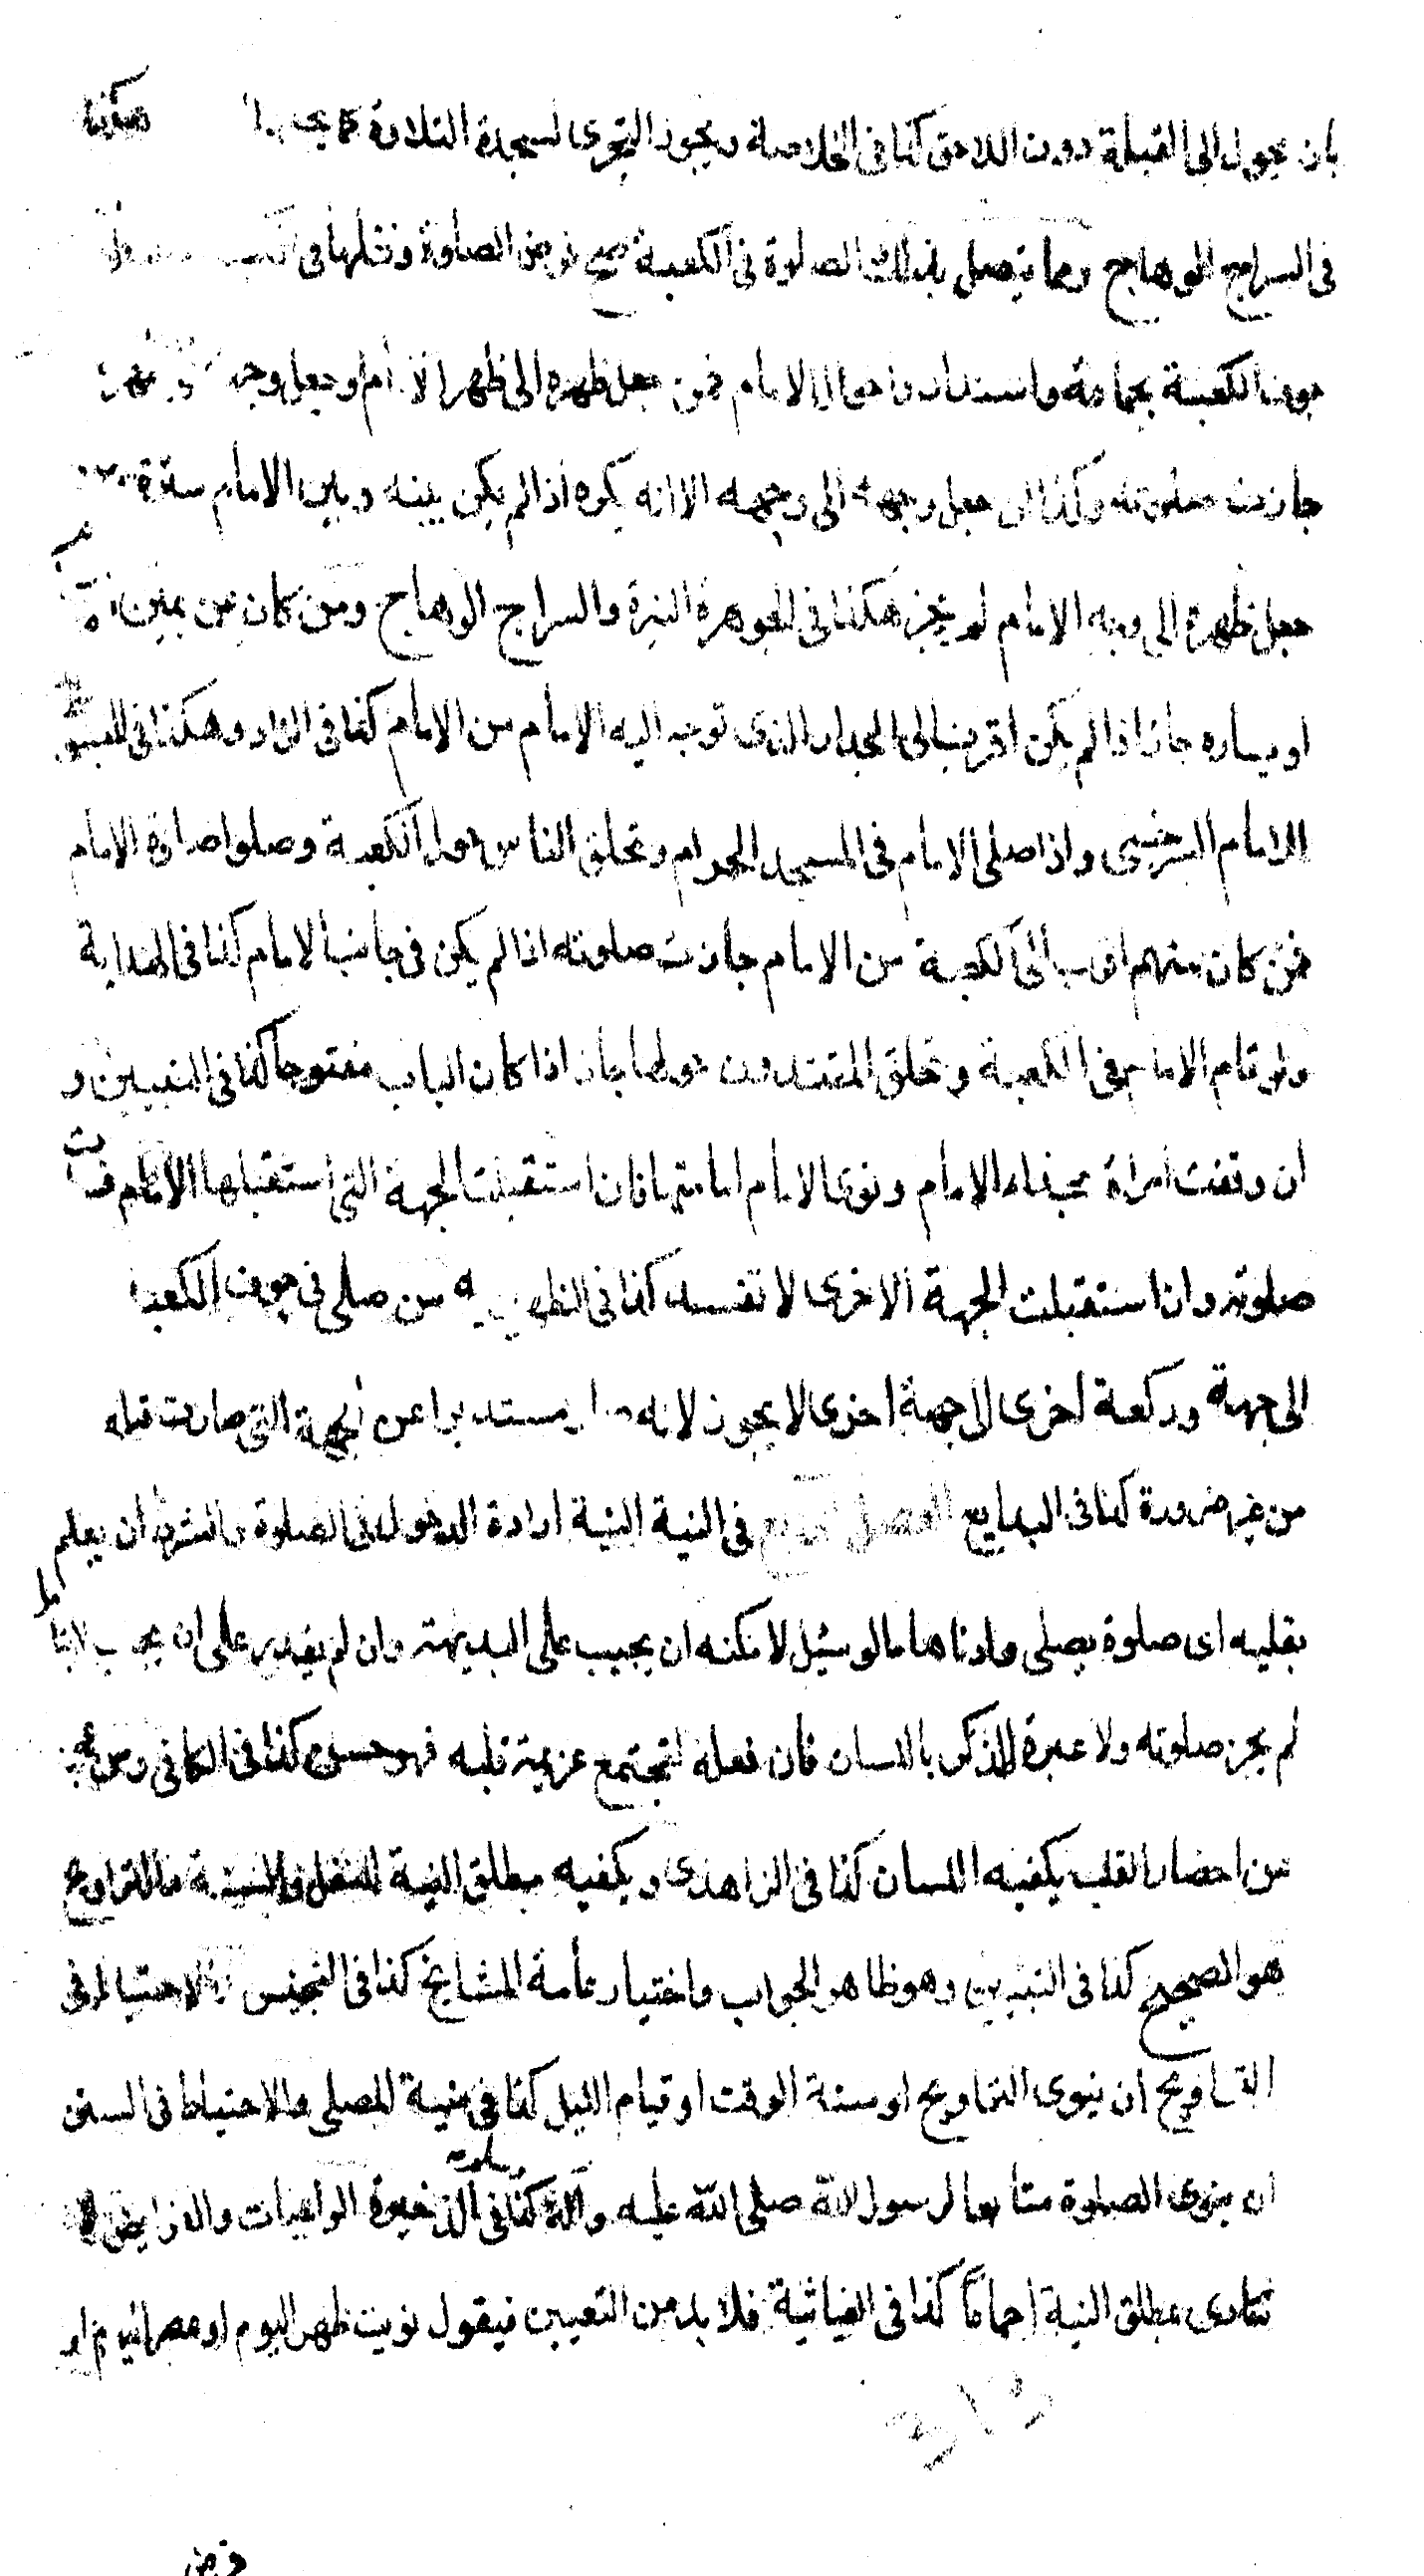 بان يحول الى القبلة دون اللاحق كذا فى الخلاصة ويجوز التحرى لسجدة التلاوة كما يجوز هكذا
فى السراج الوهاج ومما يتصل بذلك الصلوة فى الكعبة صح فرض الصلوة ونفلها فى
جوف الكعبة بجماعة واستداروا حول الامام فمن جعل ظهره الى ظهر الامام او جعل وجهه
جازت صلوته وكذا ان جعل وجهه الى وجهه الا انه يكره اذا لم يكن بينه وبين الامام سترة
جعل ظهره الى وجه الامام لم يجز هكذا فى الجوهرة النيرة والسراج الوهاج ومن كان عن يمين
او يساره جاز اذا لم يكن اقرب الى الجدار الذى توجه اليه الامام من الامام كذا فى الزاد وهكذا فى المبسوط
للامام السرخسى واذا صلى الامام فى المسجد الحرام وتحلق الناس حول الكعبة وصلوا صلوة الامام
فمن كان منهم اقرب الى الكعبة من الامام جازت صلوته اذا لم يكن فى جانب الامام كذا فى الهداية
ولو قام الامام فى الكعبة وتحلق المقتدون حولها جاز اذا كان الباب مفتوحا كذا فى التبيين و
ان وقفت امراة بحذاء الامام ونوى الامام امامتها فان استقبلت الجهة التى استقبلها الامام فسدت
صلوته وان استقبلت الجهة الاخرى لا تفسد كذا فى الظهيرية من صلى فى جوف الكعبة
الى جهة وركعة اخرى الى جهة اخرى لا يجوز لانه صار مستدبرا عن الجهة التى صارت قبله
من غير ضرورة كذا فى البدايع الفصل الرابع فى النية النية ارادة الدخول فى الصلوة والشرط ان يعلم
بقلبه اى صلوة يصلى وادناها ما لو سئل لامكنه ان يجيب على البديهة وان لم يقدر على ان يجيب الا بتامل
لم يجز صلوته ولا عبرة للذكر باللسان فان فعله لتجتمع عزيمة قلبه فهو حسن كذا فى الكافى ومن عجز
عن احضار القلب يكفيه اللسان كذا فى الزاهدى ويكفيه مطلق النية للنفل والسنة والتراويح
هو الصحيح كذا فى التبيين وهو ظاهر الجواب واختيار عامة المشايخ كذا فى التجنيس والاحتياط فى
التراويح ان ينوى التراويح او سنة الوقت او قيام الليل كذا فى منية المصلى والاحتياط فى السنن
ان ينوى الصلوة متابعا لرسول الله صلى الله عليه واله وسلم كذا فى الذخيرة الواجبات والفرايض لا
تتادى بمطلق النية اجماعا كذا فى الغياثية فلا بد من التعيين فيقول نويت ظهر اليوم او عصر اليوم او
فرض